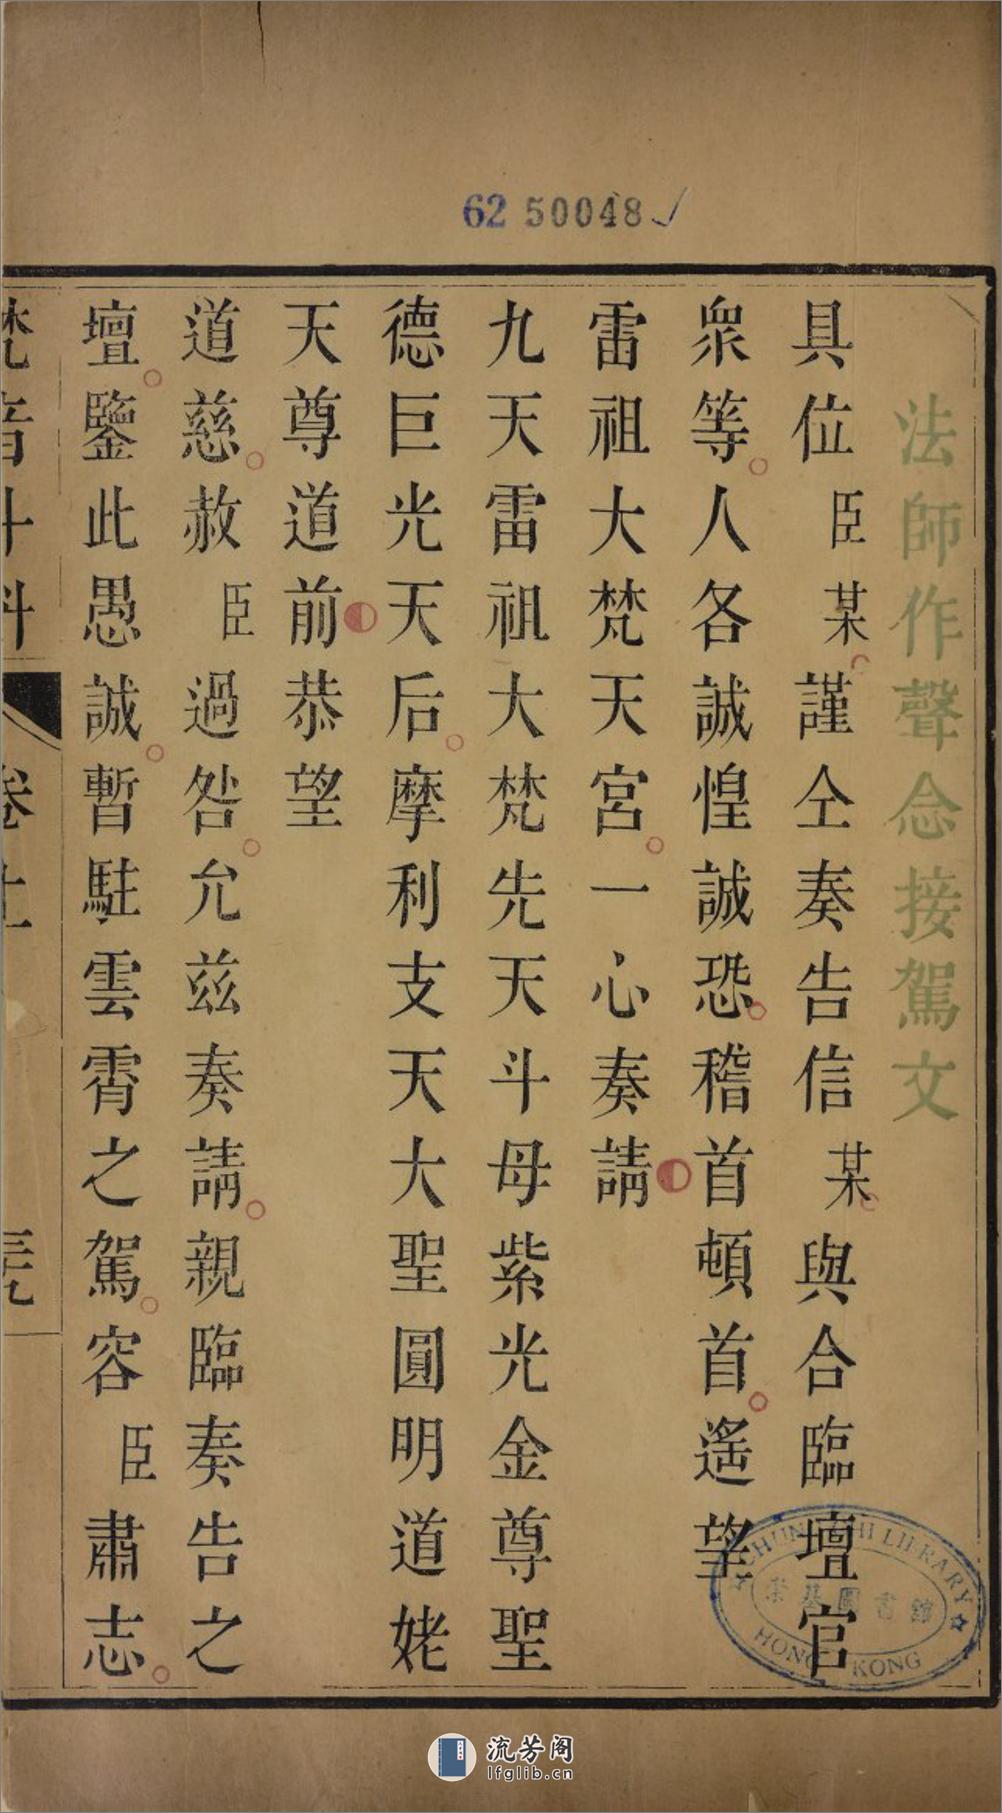 62 50048
法師作聲念接駕文
具位臣某謹仝奏告信某與合臨壇官
衆等人各誠惶誠恐稽首頓首遙望
雷祖大梵天宮一心奏請
九天雷祖大梵先天斗母紫光金尊聖
德巨光天后摩利支天大聖圓明道姥
天尊道前恭望
道慈赦臣過咎允兹奏請親臨奏告之
壇鑒此愚誠暫駐雲霄之駕容臣肅志
梵音斗科
卷上
CHUNG CHI LIBRARY
崇基圖書館
HONG KONG
流芳阁
lfglib.cn